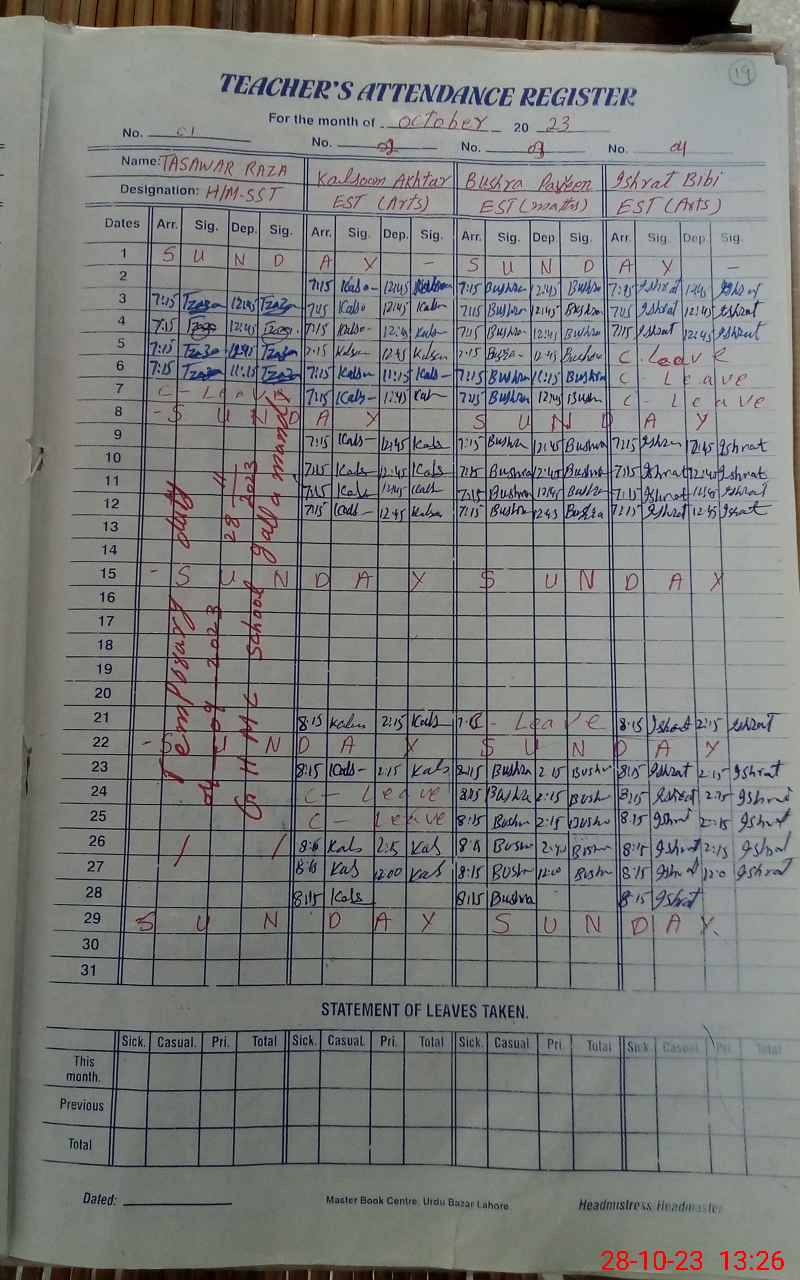 19
TEACHER'S ATTENDANCE REGISTER
For the month of October 2023
No. 01 No. 02 No. 03 No. 04
Name: TASAWAR RAZA Kalsoom Akhtar Bushra Parveen Ishrat Bibi
Designation: H/M-SST EST (Arts) EST (maths) EST (Arts)
Dates Arr. Sig. Dep. Sig. Arr. Sig. Dep. Sig. Arr. Sig. Dep. Sig. Arr. Sig. Dep. Sig.
1 S U N D A Y - S U N D A Y -
2 7:15 Kalso- 12:45 7:15 Bushra 12:45 Bushra 7:15 Ishrat 12:45 Ishrat
3 7:15 Tzaza 12:45 Tzaza 7:15 Kalso 12:45 Kals 7:15 Bushra 12:45 Bushra 7:15 Ishrat 12:45 Ishrat
4 7:15 12:45 7:15 Kalso- 12:45 Kals- 7:15 Bushra 12:45 Bushra 7:15 Ishrat 12:45 Ishrat
5 7:15 Tzaza 12:45 Tzaza 7:15 Kalsoo 12:45 Kalsoo 7:15 Bushra 12:45 Bushra C. Leave
6 7:15 Tzaza 11:15 Tzaza 7:15 Kalsoo 11:15 Kals- 7:15 Bushra 11:15 Bushra C - Leave
7 C - Leave 7:15 Kals- 12:45 Kals 7:15 Bushra 12:45 Bush C - Leave
8 - S U N D A Y S U N D A Y
9 7:15 Kals- 12:45 Kals 7:15 Bushra 12:45 Bushra 7:15 Ishrat 12:45 Ishrat
10 7:15 Kals- 12:45 Kals 7:15 Bushra 12:45 Bushra 7:15 Ishrat 12:45 Ishrat
11 7:15 Kals 12:45 Kals 7:15 Bushra 12:45 Bushra 7:15 Ishrat 12:45 Ishrat
12 7:15 Kals- 12:45 Kalsoo 7:15 Bushra 12:45 Bushra 7:15 Ishrat 12:45 Ishrat
13
14
15 - S U N D A Y S U N D A Y
16
17
18
19
20
21 8:15 Kals 2:15 Kals C - Leave 8:15 Ishrat 2:15 Ishrat
22 - S U N D A Y S U N D A Y
23 8:15 Kals- 2:15 Kals 8:15 Bushra 2:15 Bushr 8:15 Ishrat 2:15 Ishrat
24 C - Leave 8:15 Bushra 2:15 Bushr 8:15 Ishrat 2:15 Ishrat
25 C - Leave 8:15 Bushr 2:15 Bushr 8:15 Ishrat 2:15 Ishrat
26 / / 8:15 Kals 2:15 Kals 8:15 Bushr Bushr 8:15 Ishrat 2:15 Ishrat
27 8:15 Kals 12:00 Kals 8:15 Bushr 12:00 Bushr 8:15 Ishrat 12:0 Ishrat
28 8:15 Kals 8:15 Bushra 8:15 Ishrat
29 S U N D A Y S U N D A Y.
30
31
Temposary duty
04-09-2023 28-11-2023
G H M C School galla mandi
STATEMENT OF LEAVES TAKEN.
Sick. Casual. Pri. Total Sick. Casual. Pri. Total Sick. Casual Pri. Total Sick. Casual Pri. Total
This month.
Previous
Total
Dated: Master Book Centre, Urdu Bazar Lahore. Headmistress/Headmaster
28-10-23 13:26